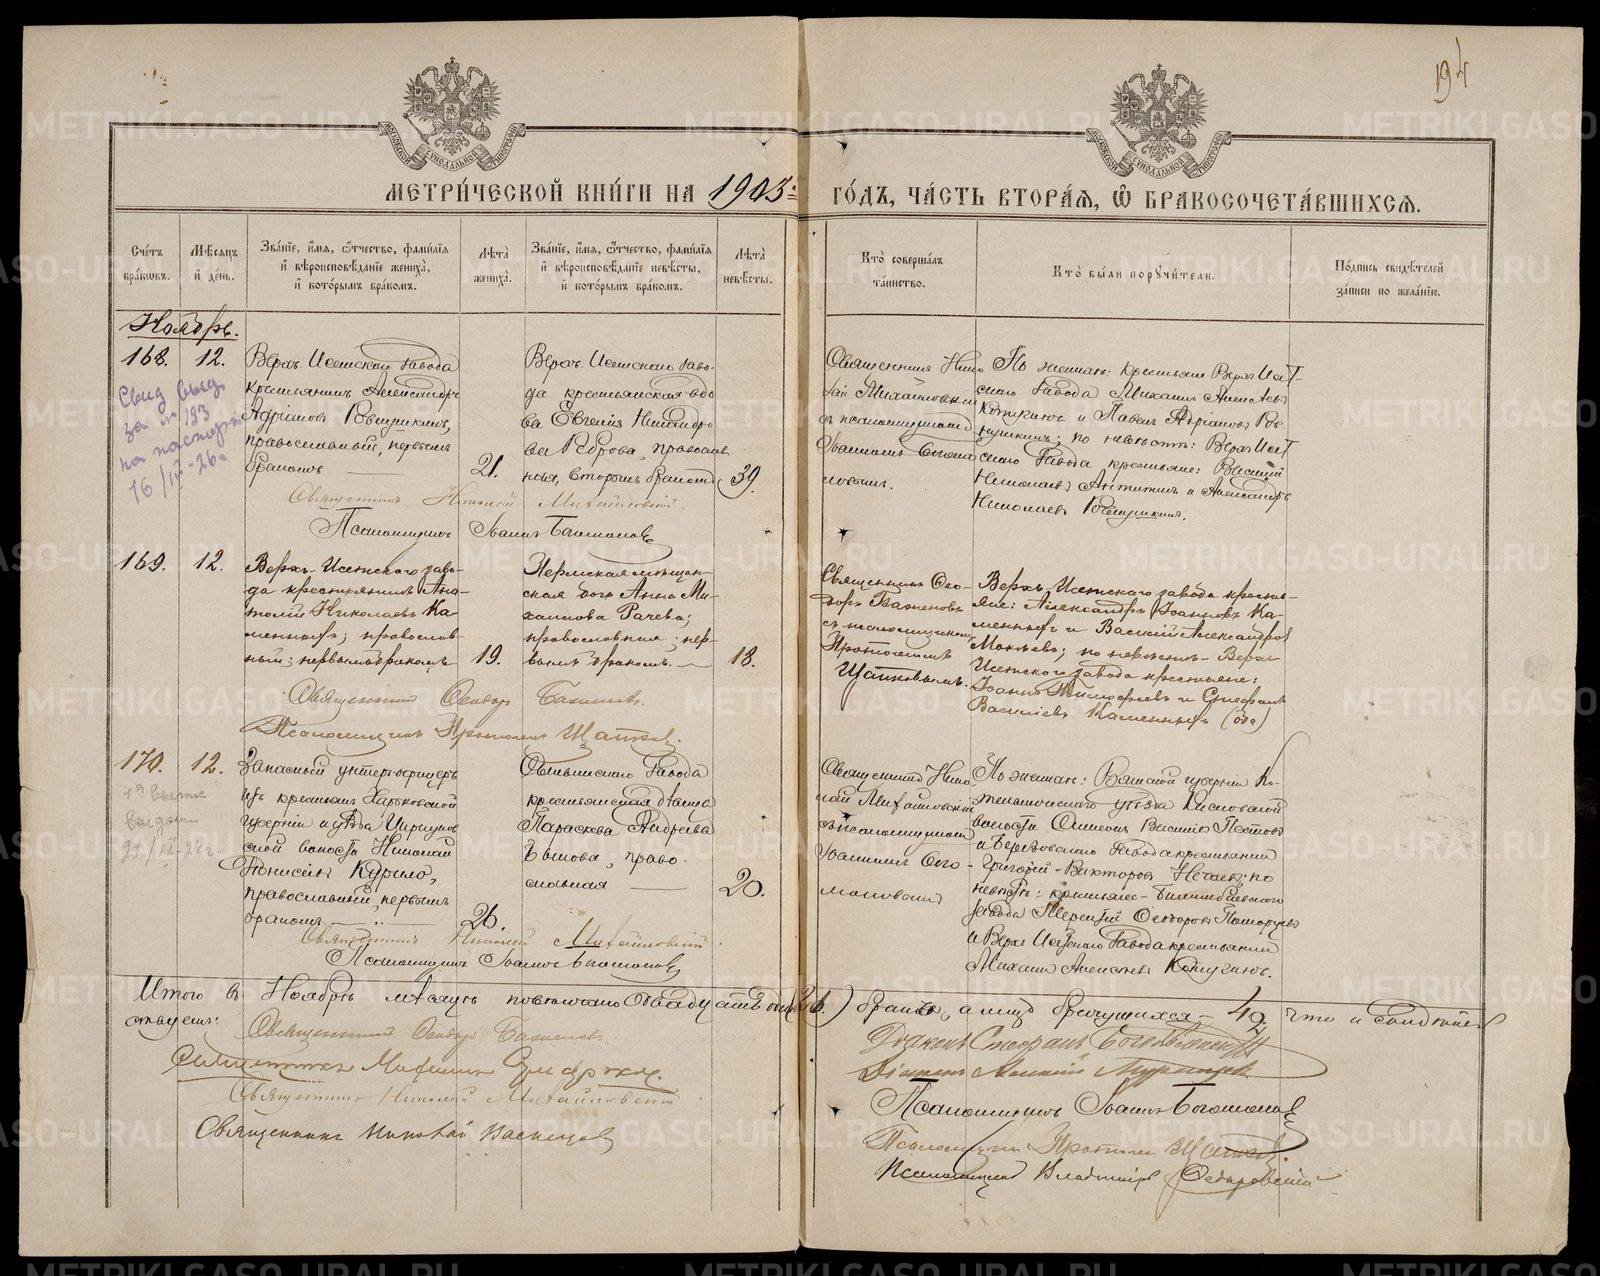 194
МОСКОВСКОЙ СѴНОДАЛЬНОЙ ТИПОГРАФІИ
МОСКОВСКОЙ СѴНОДАЛЬНОЙ ТИПОГРАФІИ
МЕТРИ́ЧЕСКОЙ КНИ́ГИ НА 1903 ГО́ДЪ, ЧА́СТЬ ВТОРА́Я, Ѽ БРАКОСОЧЕТА́ВШИХСѦ.
Сче́тъ бра́кѡвъ.
Мѣ́сѧцъ и҆ де́нь.
Зва́нїе, и҆́мѧ, ѻ҆́тчество, фами́лїѧ и҆ вѣроисповѣ́данїе жениха̀, и҆ кото́рымъ бра́комъ.
Лѣ̑та жениха̀.
Зва́нїе, и҆́мѧ, ѻ҆́тчество, фами́лїѧ и҆ вѣроисповѣ́данїе невѣ́сты, и҆ кото́рымъ бра́комъ.
Лѣ̑та невѣ́сты.
Кто̀ соверша́лъ та́инство.
Кто̀ бы́ли порꙋчи́тели.
По́дпись свидѣ́телей за́писи по жела́нїю.
Ноябрь.
168. 12.
Верхъ Исетскаго завода
крестьянинъ Александръ
Адріановъ
православный, первымъ
бракомъ
21.
Верхъ Исетскаго заво-
да крестьянская вдо
ва Евгенія Никандро
ва Реброва, православ
ная, вторымъ бракомъ
39.
Священникъ Нико
лай Михайловскій
съ псаломщикомъ
Іоанномъ Богомо
ловымъ.
По женихѣ: крестьяне Верхъ Исет
скаго завода Михаилъ Алексѣевъ
Кожугинъ и Павелъ Адріановъ
по невѣстѣ: Верхъ Исет
скаго завода крестьяне: Василій
Николаевъ Антипинъ и Александръ
Николаевъ
Свид выд
за № 193
на паспорте
16/IV-26г
Священникъ Николай Михайловскій.
Псаломщикъ Іоаннъ Богомоловъ
169. 12.
Верхъ-Исетскаго заво-
да крестьянинъ Ана-
толій Николаевъ Ка-
менныхъ; православ-
ный; первымъ бракомъ
19.
Пермская мѣщан-
ская дочь Анна Ми-
хаилова Рачева;
православная; пер-
вымъ бракомъ.
18.
Священникъ Ѳео-
доръ Баженовъ
съ псаломщикомъ
Протогеномъ
Щапковымъ.
Верхъ-Исетскаго завода крестья-
яне: Александръ Іоанновъ Ка-
менныхъ и Василій Александровъ
Мокѣевъ; по невѣстѣ - Верхъ
Исетскаго завода крестьяне:
Іоаннъ Тимоѳеевъ и Стефанъ
Василіевъ Каменныхъ (оба)
Священникъ Ѳеодоръ Баженовъ.
Псаломщикъ Протогенъ Щапковъ.
170. 12.
Запасный унтеръ-офицеръ
изъ крестьянъ Харьковской
губерніи и уѣзда Циркунов
ской волости Николай
Діонисіевъ Курило,
православный, первымъ
бракомъ
26.
завода
крестьянская дѣвица
Параскева Андреева
православная
20.
Священникъ Нико
лай Михайловскій
съ псаломщикомъ
Іоанномъ Бого-
моловымъ
По женихѣ: Вятской губерніи Ко-
тельническаго уѣзда Кисловской
волости Василіевъ
и Березовскаго завода крестьянинъ
Григорій Викторовъ Нечаевъ; по
невѣстѣ: крестьяне Билимбаевскаго
завода Терентій Ѳеодоровъ
и Верхъ Исетскаго завода крестьянинъ
Михаилъ Алексѣевъ Кожугинъ.
Священникъ Николай Михайловскій.
Псаломщикъ Іоаннъ Богомоловъ
Итого въ Ноябрѣ мѣсяцѣ повѣнчано двадцать одинъ (21) бракъ, а лицъ брачущихся - 42, что и свидѣтель
ствуемъ:
Священникъ Ѳеодоръ Баженовъ.
Священникъ
Священникъ Николай Михайловскій.
Священникъ Николай Васнецовъ
Діаконъ Стефанъ Богоявленскій
Діаконъ Алексій Мурзинцевъ
Псаломщикъ Іоаннъ Богомоловъ
Псаломщикъ Протогенъ Щапковъ.
Псаломщикъ Владиміръ
METRIKI.GASO-URAL.RU